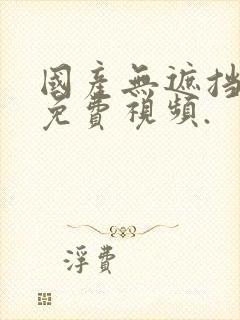 國產無遮挡
免費視頻.
浮費